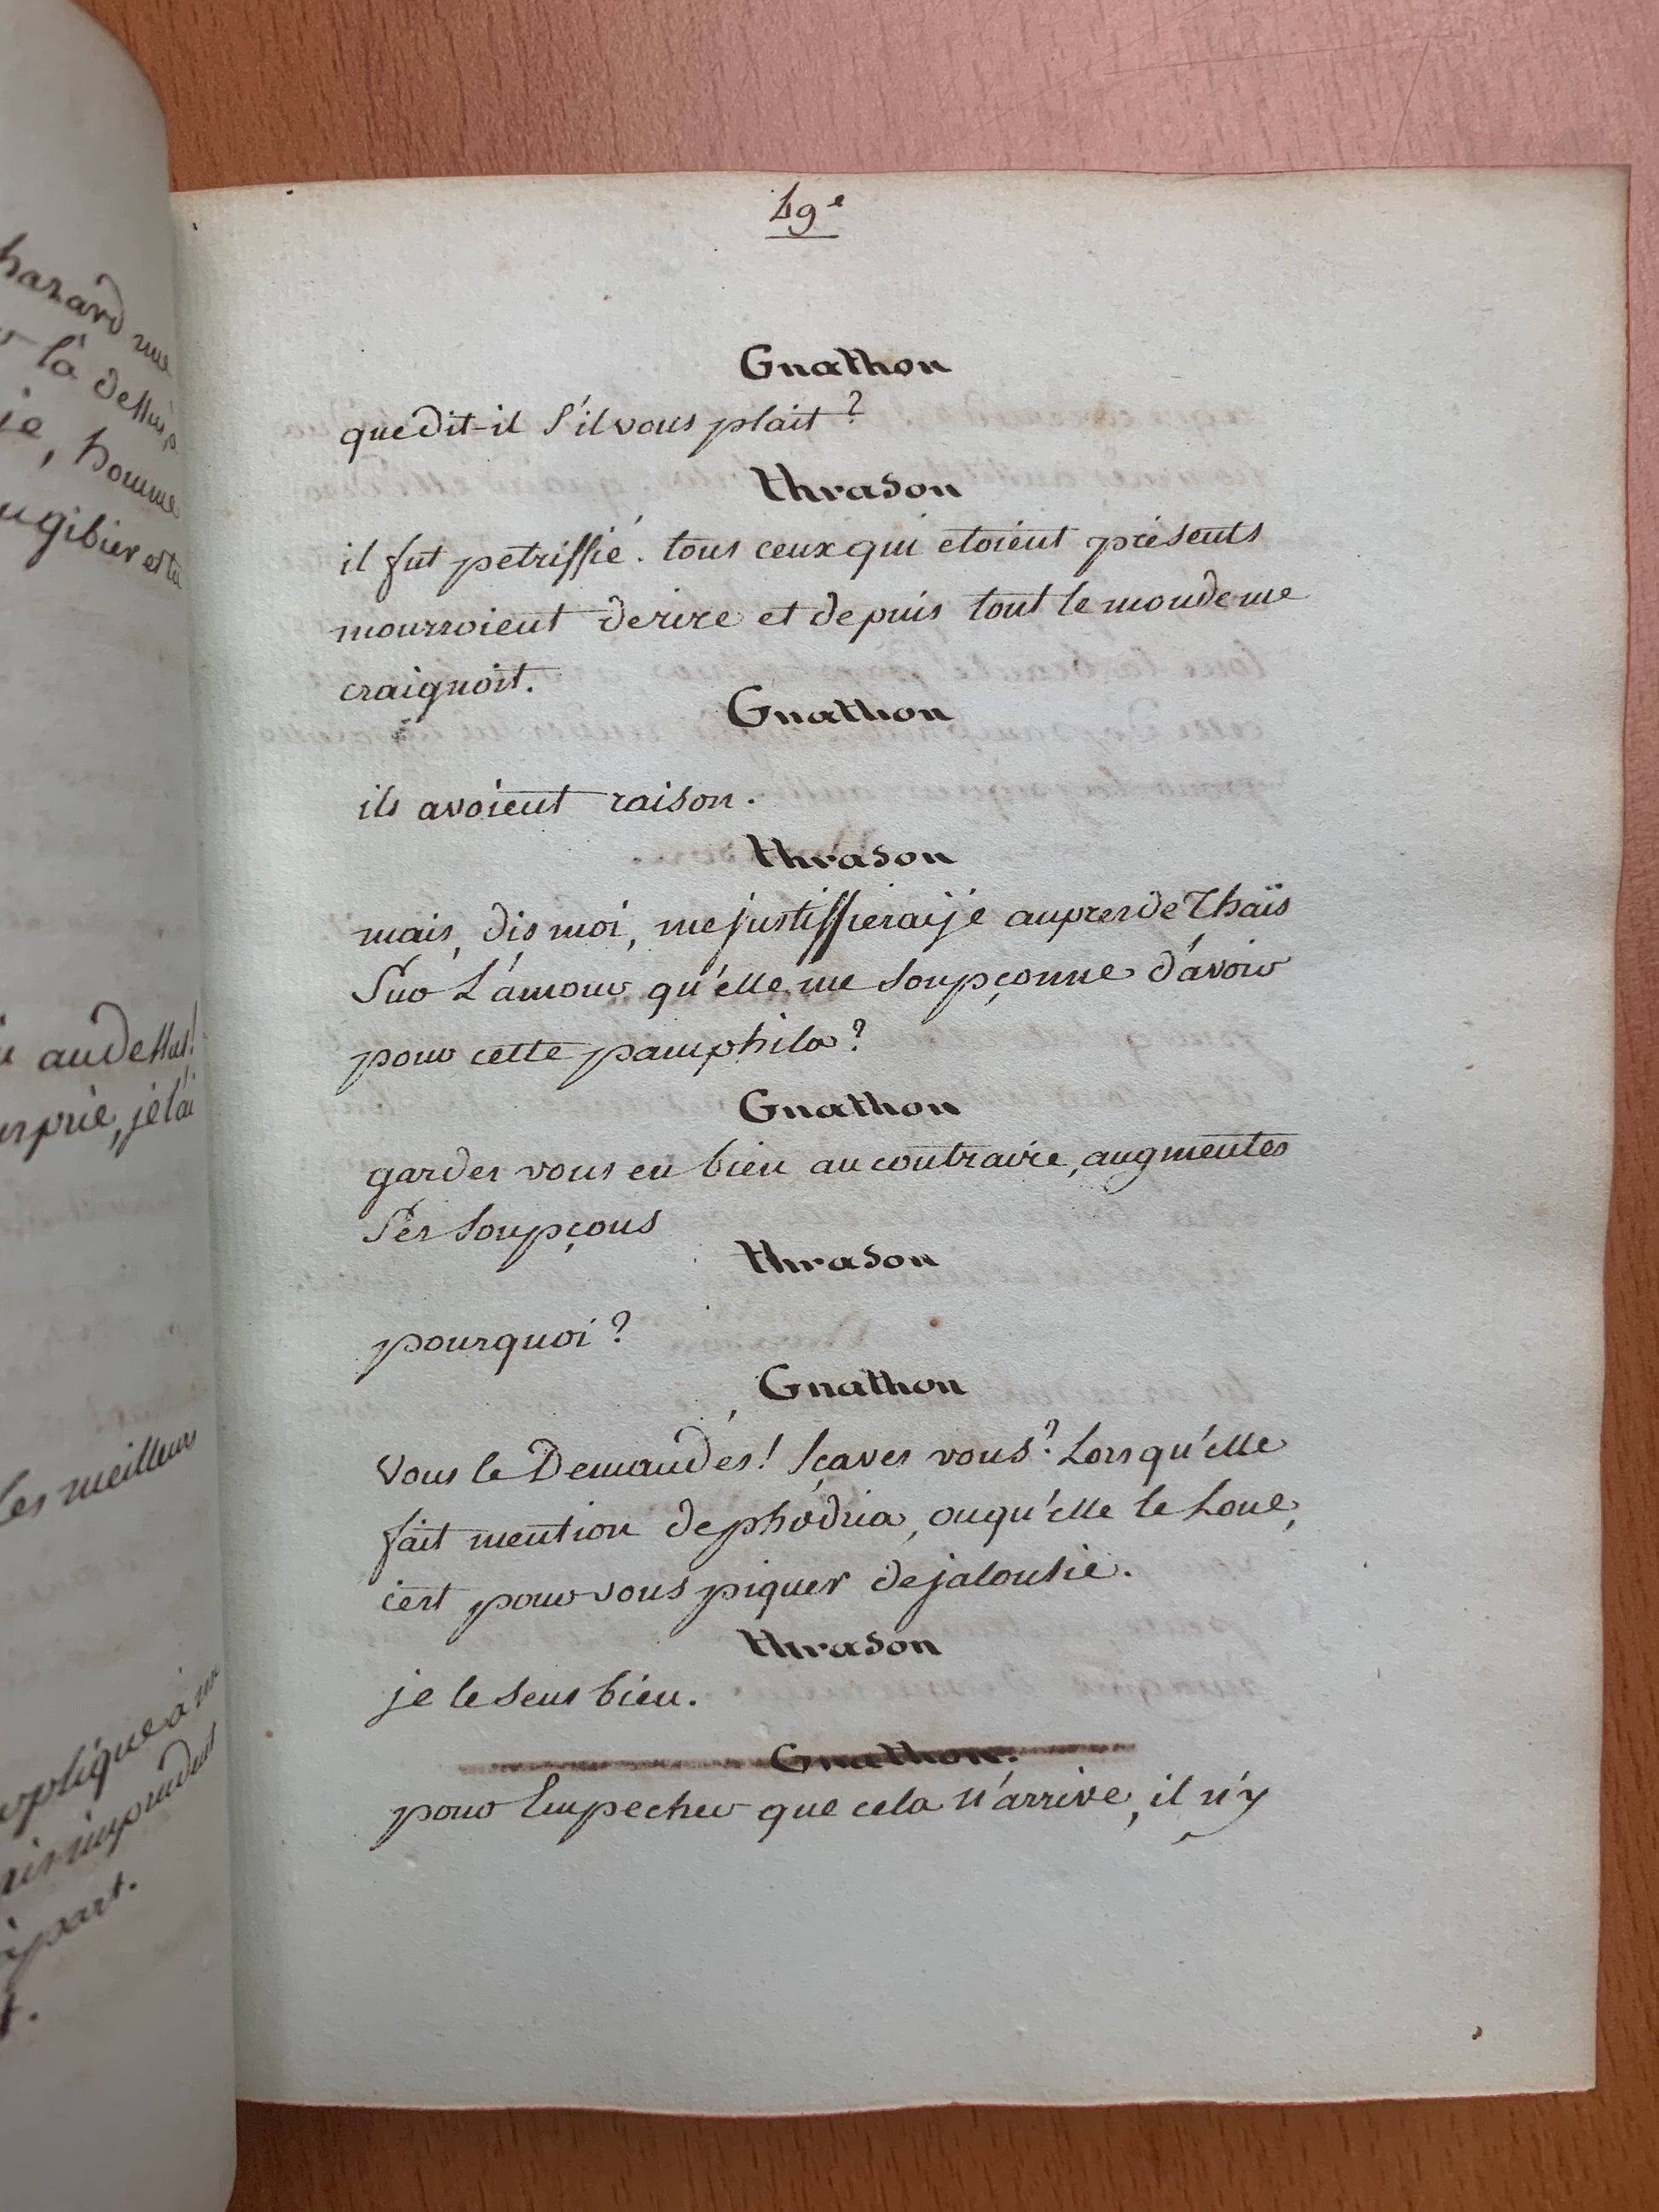 hazard une
là dessus,
ie, homme
ugibier et tu
au dessus!
prie, je l'ai
Les meilleurs
applique à un
imprudent
àpart.
49e
Gnathon
que dit-il s'il vous plait ?
thrason
il fut petriffié. tous ceux qui etoient présents
mourroient de rire et depuis tout le monde me
craignoit.
Gnathon
ils avoient raison.
thrason
mais, dis moi, me justiffierai je aupres de Thaïs
Sur L'amour qu'elle me soupçonne d'avoir
pour cette pamphila ?
Gnathon
gardes vous en bien au contraire, augmentes
Ses soupçons
thrason
pourquoi ?
Gnathon
Vous le Demandés ! sçaves vous ? Lorsqu'elle
fait mention de phédria, ou qu'elle le Loue,
c'est pour vous piquer de jalousie.
thrason
je le sens bien.
Gnathon.
pour Empecher que cela n'arrive, il n'y